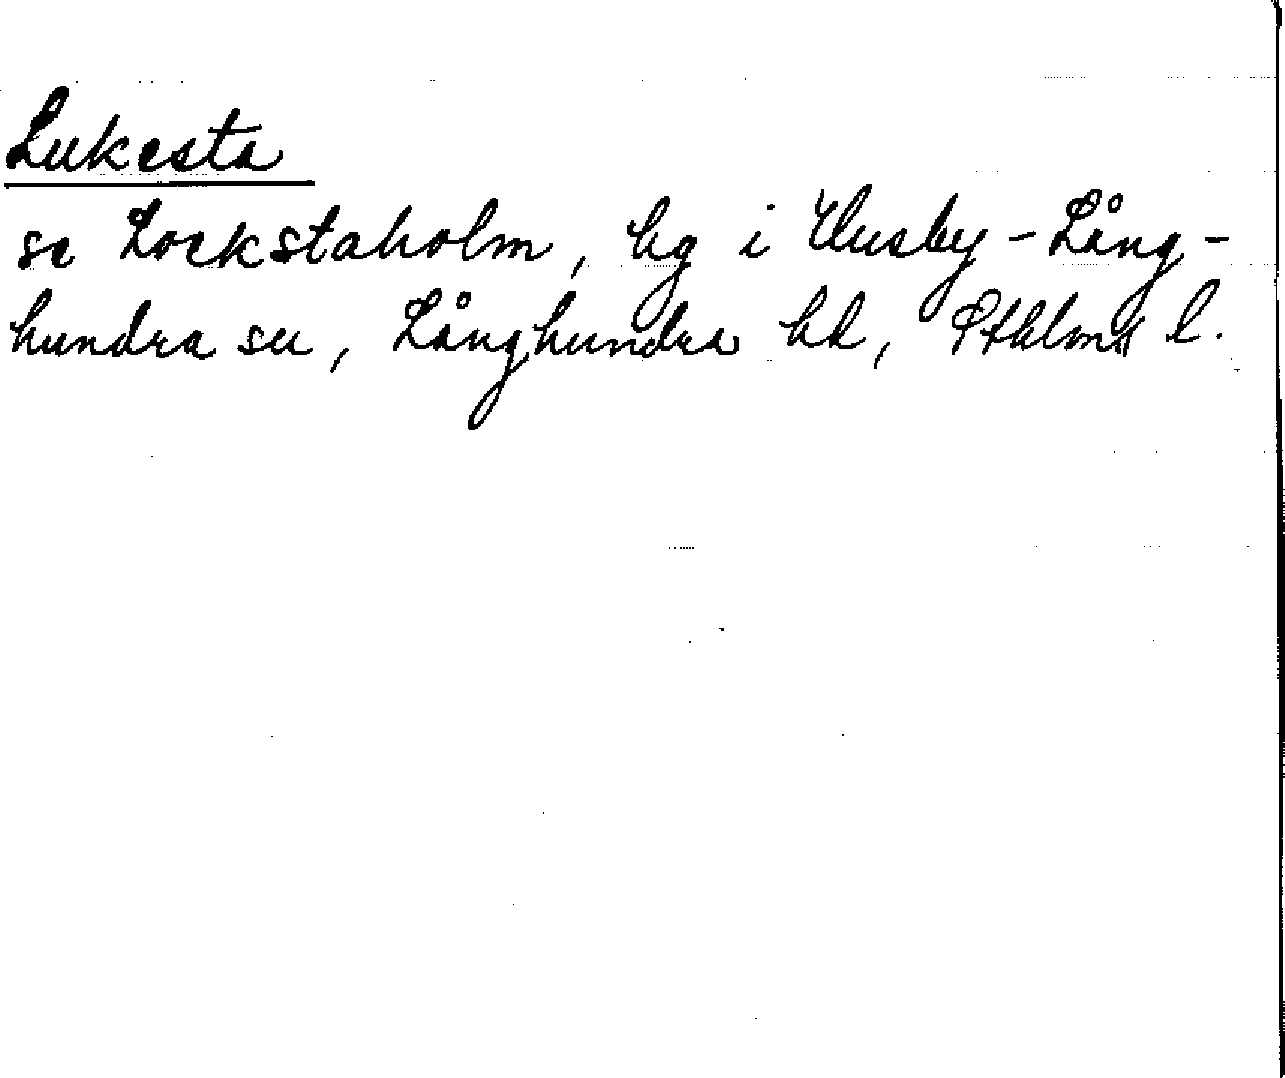 Lukesta
se Lockstaholm, hg i Husby-Lång-
hundra sn, Långhundra hd, Sthlms l.